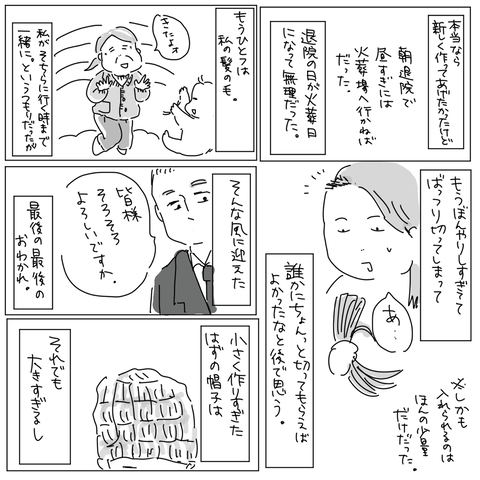 本当なら
新しく作ってあげたかったけど
朝退院で
昼すぎには
火葬場へ行かねば
だった。
退院の日が火葬日
になって無理だった。
もうひとつは
私の髪の毛。
きたよぉ
私がそちらに行く時まで
一緒に。というつもりだったが
もうぼんやりしすぎてて
ばっつり切ってしまって
あ…
※しかも
入れられるのは
ほんの少量
だけだった。
誰かにちょんっと切ってもらえば
よかったなと後で思う。
そんな風に迎えた
皆様
そろそろ
よろしいですか。
最後の最後の
おわかれ。
小さく作りすぎた
はずの帽子は
それでも
大きすぎるし